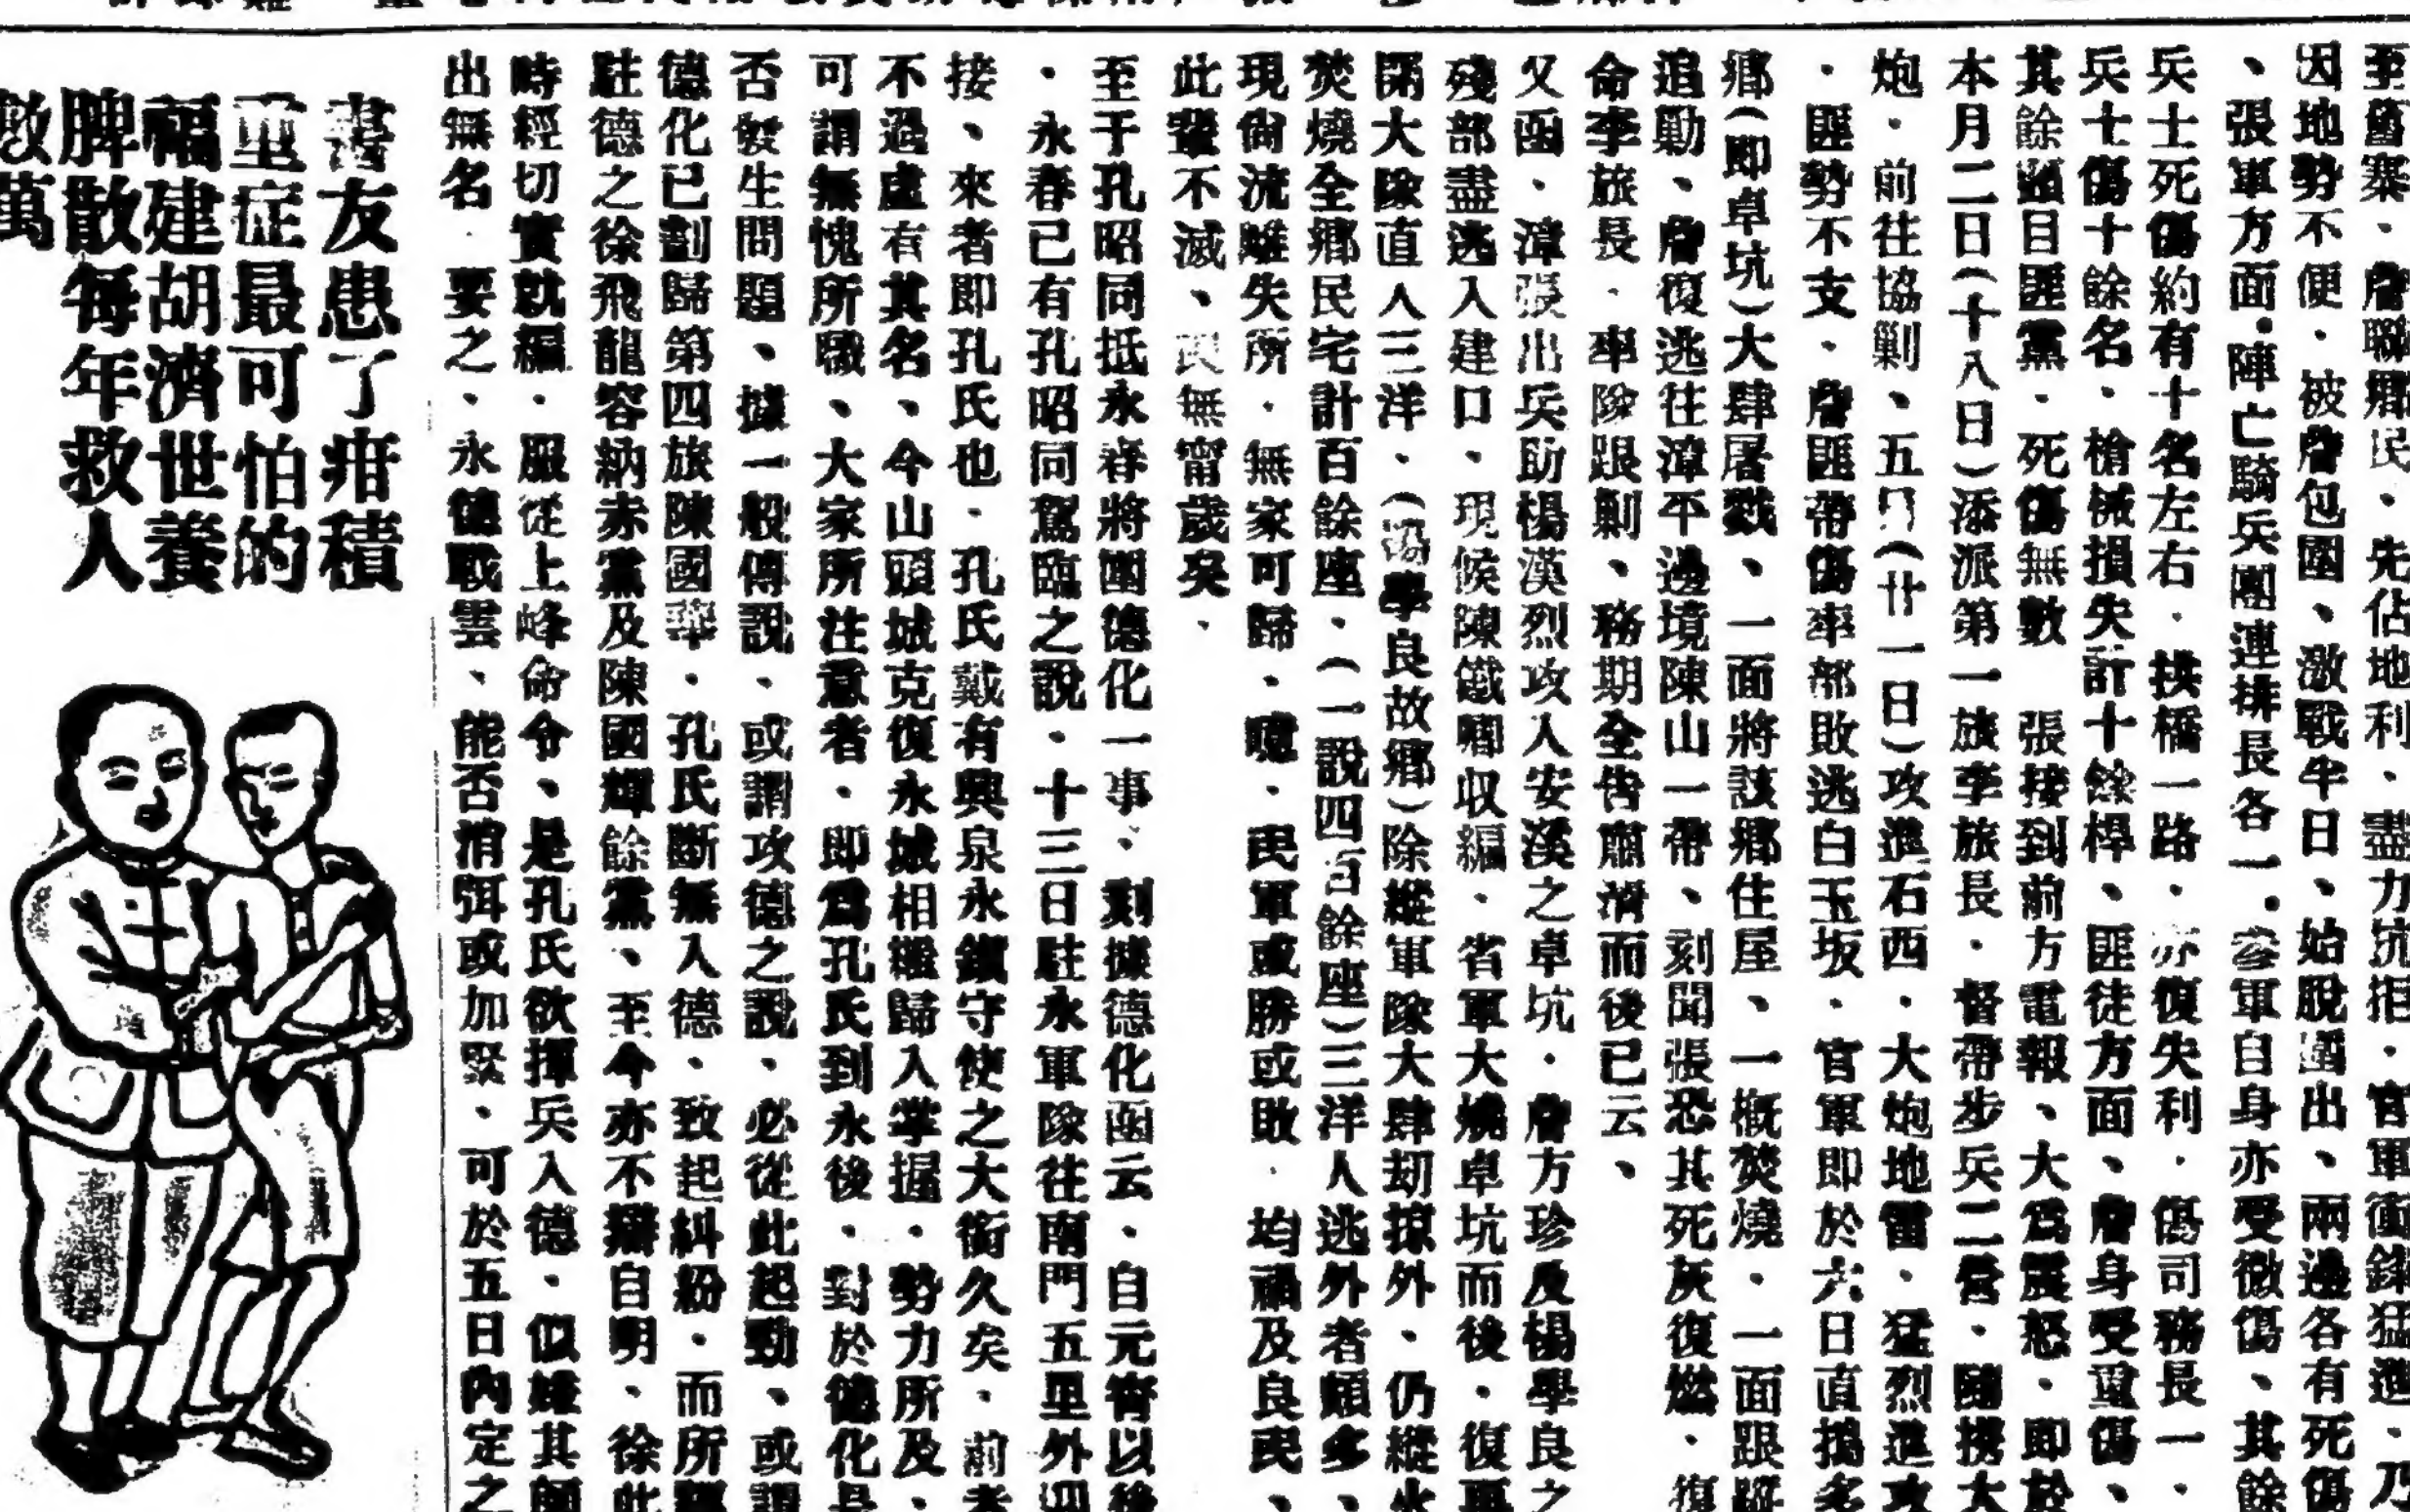 至舊寨・詹聯鄉民、先佔地利・盡力抗拒・官軍衝鋒猛進・乃
因地勢不便・被詹包圍、激戰半日、始脫圍出、兩邊各有死傷
、張軍方面・陣亡騎兵團連排長各一・軍自身亦受微傷、其餘
兵士死傷約有十名左右・拱橋一路・亦復失利・傷司務長一・
兵士傷十餘名・槍械損失計十餘桿、匪徒方面、詹身受重傷、
其餘頭目匪黨・死傷無數 張接到前方電報、大爲震怒・即於
本月二日(十八日)添派第一旅李旅長・督帶步兵二營・隨携大
炮・前往協剿、五日(廿一日)攻進石西・大炮地雷・猛烈進攻
・匪勢不支・詹匪帶傷率部敗逃白玉坂・官軍即於六日直搗多
鄉(即卓坑)大肆屠戮、一面將該鄉住屋、一概焚燒・一面跟蹤
追勦、詹復逃往漳平邊境陳山一帶、刻聞張恐其死灰復燃・復
命李旅長・率隊跟剿、務期全告肅清而後已云、
又函、漳張出兵助楊漢烈攻入安溪之卓坑・詹方珍及楊學良之
殘部盡逃入建口、現候陳鐵卿収編・省軍大燒卓坑而後・復再
開大隊直入三洋・(楊學良故鄉)除縱軍隊大肆刧掠外、仍縱火
焚燒全鄉民宅計百餘座、(一說四百餘座)三洋人逃外者頗多、
現尙流離失所・無家可歸・噫・民軍或勝或敗・均禍及良民、
此輩不滅、民無甯歲矣・
至于孔昭同抵永春將圍德化一事、刻據德化函云・自元宵以後
・永春已有孔昭同駕臨之說・十三日駐永軍隊往南門五里外迎
接、來者即孔氏也・孔氏戴有興泉永鎮守使之大銜久矣・前者
不過虛有其名、今山頭城克復永城相繼歸入掌握・勢力所及、
可謂無愧所職、大家所注意者・即爲孔氏到永後・對於德化是
否發生問題、據一般傳說、或謂攻德之說・必從此起勁、或謂
德化已劃歸第四旅陳國華・孔氏斷無入德・致起糾紛・而所
駐德之徐飛龍容納赤黨及陳國輝餘黨、至今亦不辯自明、徐此
時經切實就編・服從上峰命令、是孔氏欲揮兵入德・似嫌其師
出無名・要之、永德戰雲、能否消弭或加緊、可於五日內定之
書友患了疳積
重症最可怕的
福建胡濟世養
脾散每年救人
數萬